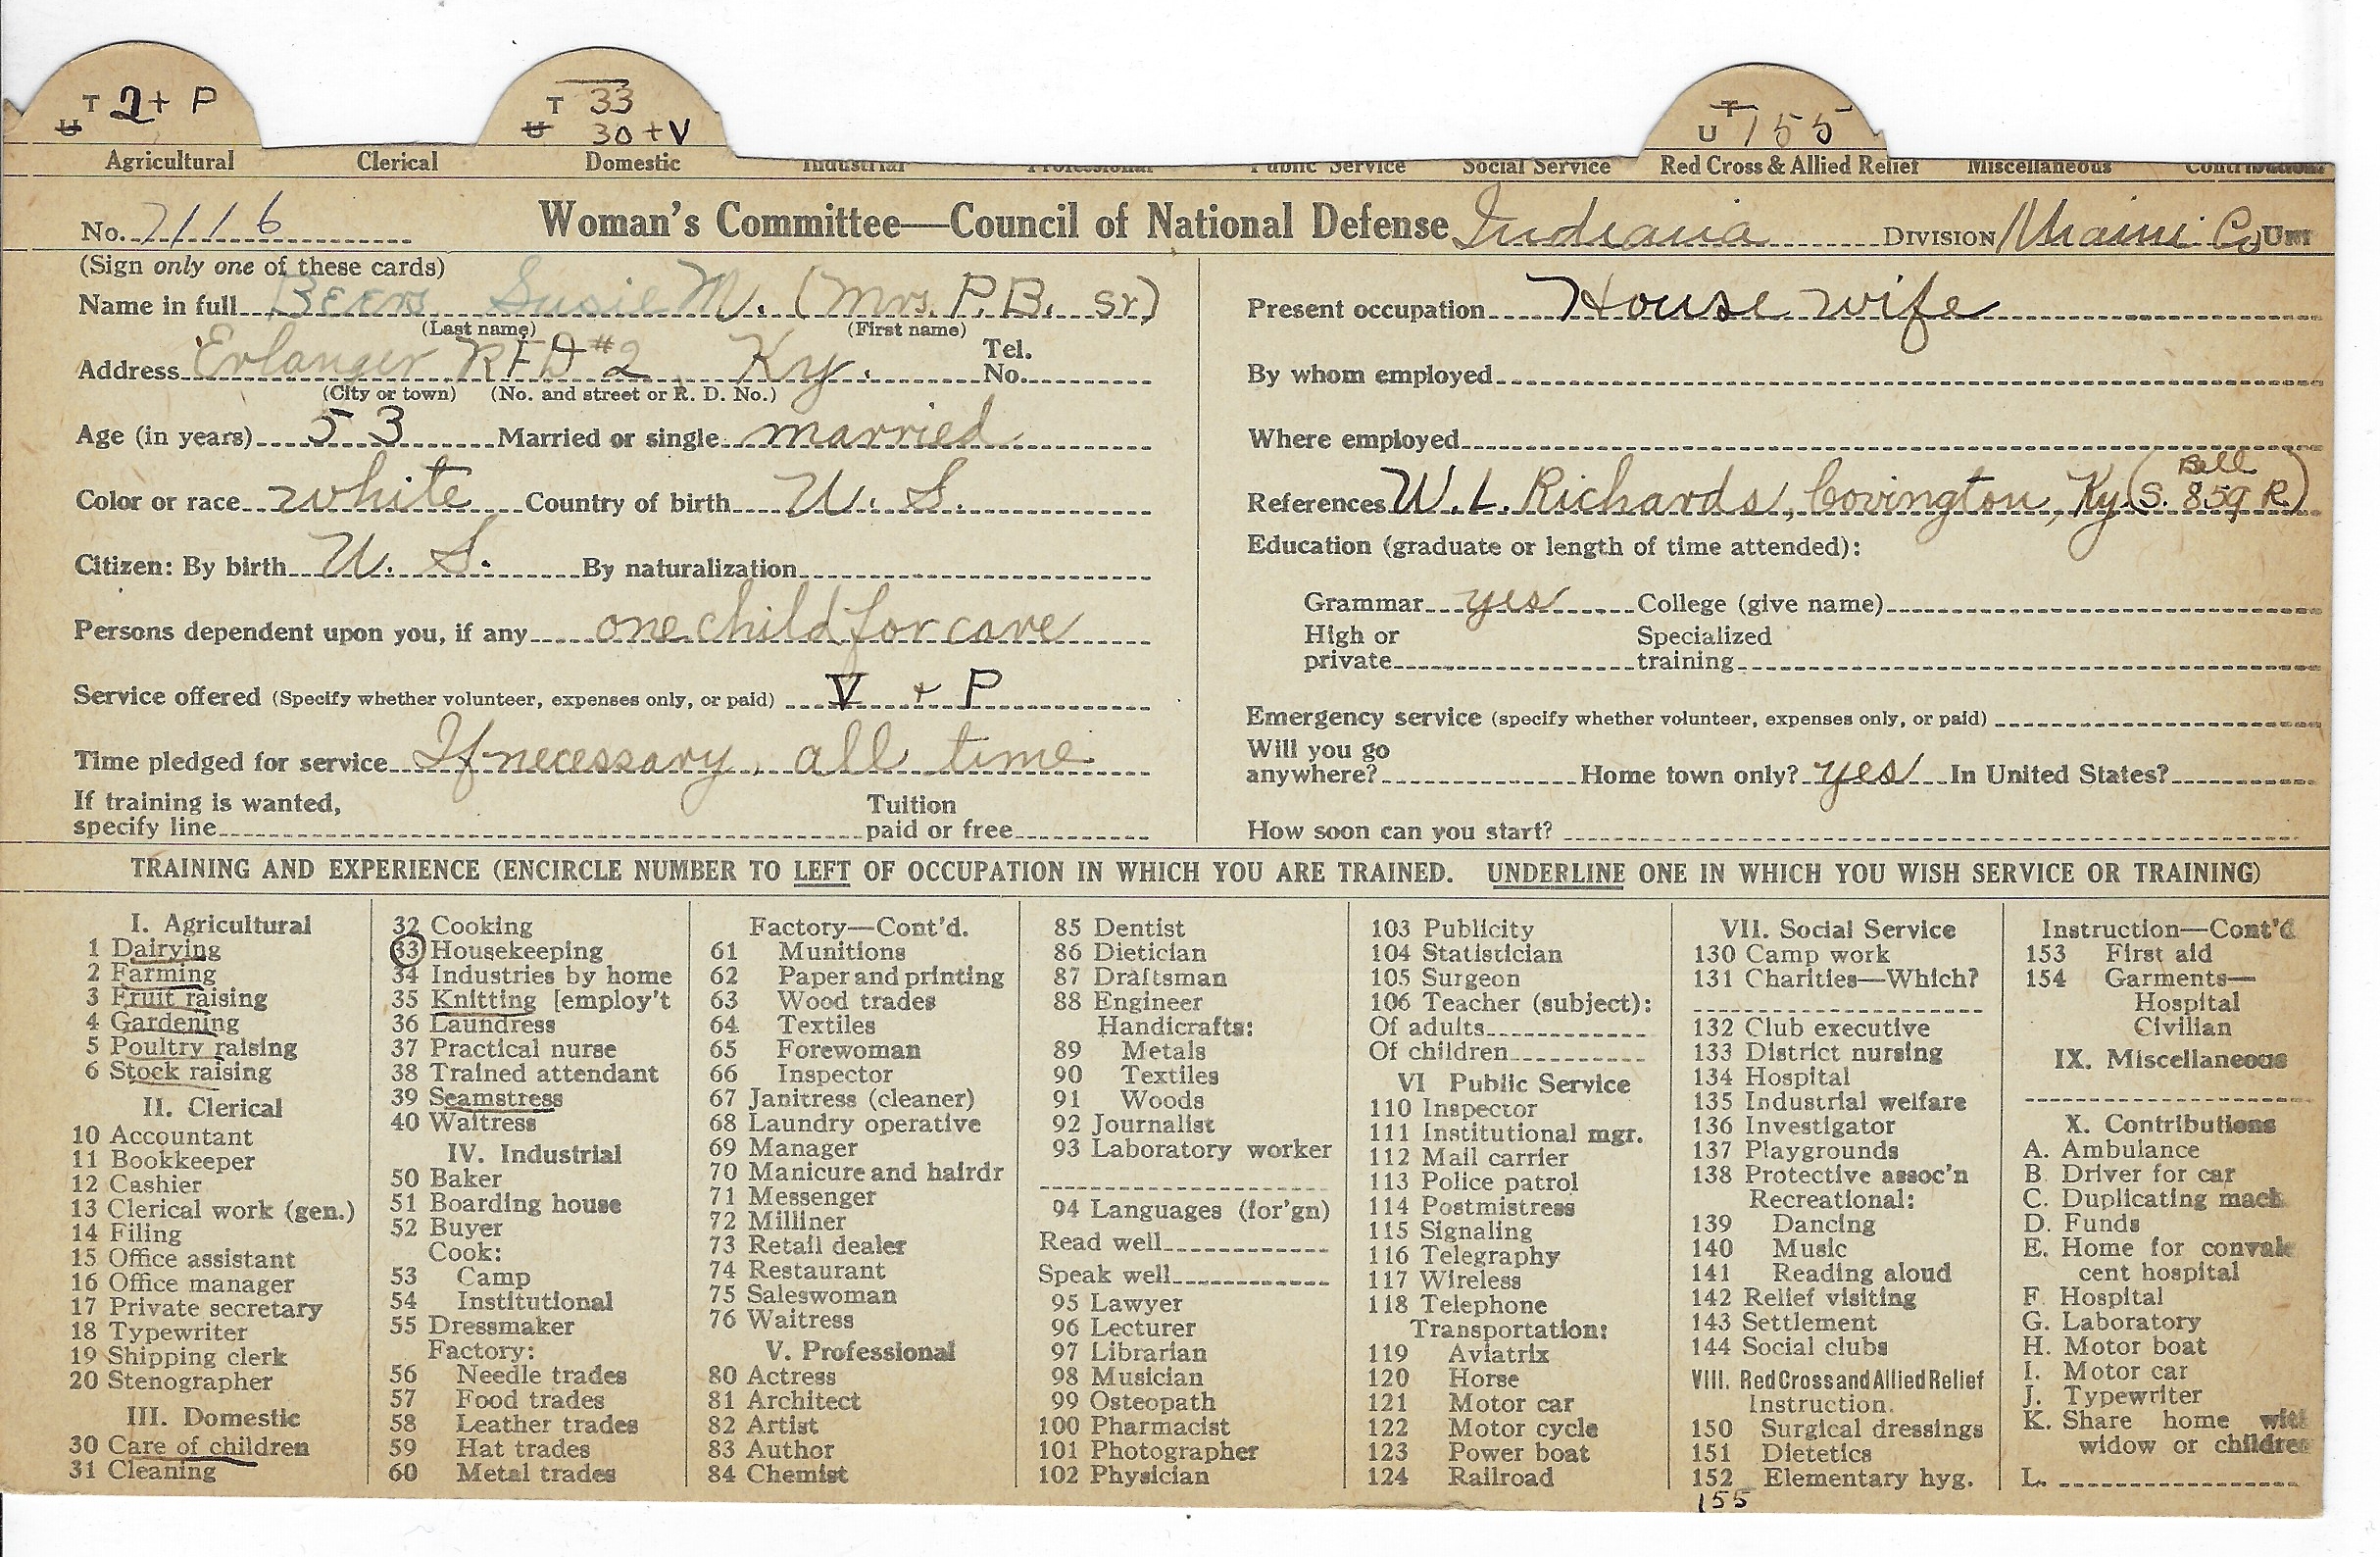 T 2 + P
U
T 33
U 30 + V
T
U 155
Agricultural Clerical Domestic Industrial Professional Public Service Social Service Red Cross & Allied Relief Miscellaneous Contributions
No. 7116 Woman's Committee—Council of National Defense Indiana DIVISION Miami Co UNIT
(Sign only one of these cards)
Name in full Beers Susie M. (Mrs. P. B. sr)
(Last name) (First name)
Address Erlanger RFD #2 Ky. Tel. No.
(City or town) (No. and street or R. D. No.)
Age (in years) 53 Married or single married
Color or race white Country of birth U. S.
Citizen: By birth U. S. By naturalization
Persons dependent upon you, if any one child for care
Service offered (Specify whether volunteer, expenses only, or paid) V + P
Time pledged for service If necessary, all time
If training is wanted, specify line Tuition paid or free
Present occupation House wife
By whom employed
Where employed
References W. L. Richards, Covington, Ky (Bell S. 859 R)
Education (graduate or length of time attended):
Grammar yes College (give name)
High or private Specialized training
Emergency service (specify whether volunteer, expenses only, or paid)
Will you go anywhere? Home town only? yes In United States?
How soon can you start?
TRAINING AND EXPERIENCE (ENCIRCLE NUMBER TO LEFT OF OCCUPATION IN WHICH YOU ARE TRAINED. UNDERLINE ONE IN WHICH YOU WISH SERVICE OR TRAINING)
I. Agricultural
1 Dairying
2 Farming
3 Fruit raising
4 Gardening
5 Poultry raising
6 Stock raising
II. Clerical
10 Accountant
11 Bookkeeper
12 Cashier
13 Clerical work (gen.)
14 Filing
15 Office assistant
16 Office manager
17 Private secretary
18 Typewriter
19 Shipping clerk
20 Stenographer
III. Domestic
30 Care of children
31 Cleaning
32 Cooking
33 Housekeeping
34 Industries by home
35 Knitting [employ't
36 Laundress
37 Practical nurse
38 Trained attendant
39 Seamstress
40 Waitress
IV. Industrial
50 Baker
51 Boarding house
52 Buyer
Cook:
53 Camp
54 Institutional
55 Dressmaker
Factory:
56 Needle trades
57 Food trades
58 Leather trades
59 Hat trades
60 Metal trades
Factory—Cont'd.
61 Munitions
62 Paper and printing
63 Wood trades
64 Textiles
65 Forewoman
66 Inspector
67 Janitress (cleaner)
68 Laundry operative
69 Manager
70 Manicure and hairdr
71 Messenger
72 Milliner
73 Retail dealer
74 Restaurant
75 Saleswoman
76 Waitress
V. Professional
80 Actress
81 Architect
82 Artist
83 Author
84 Chemist
85 Dentist
86 Dietician
87 Draftsman
88 Engineer
Handicrafts:
89 Metals
90 Textiles
91 Woods
92 Journalist
93 Laboratory worker
94 Languages (for'gn)
Read well
Speak well
95 Lawyer
96 Lecturer
97 Librarian
98 Musician
99 Osteopath
100 Pharmacist
101 Photographer
102 Physician
103 Publicity
104 Statistician
105 Surgeon
106 Teacher (subject):
Of adults
Of children
VI Public Service
110 Inspector
111 Institutional mgr.
112 Mail carrier
113 Police patrol
114 Postmistress
115 Signaling
116 Telegraphy
117 Wireless
118 Telephone
Transportation:
119 Aviatrix
120 Horse
121 Motor car
122 Motor cycle
123 Power boat
124 Railroad
VII. Social Service
130 Camp work
131 Charities—Which?
132 Club executive
133 District nursing
134 Hospital
135 Industrial welfare
136 Investigator
137 Playgrounds
138 Protective assoc'n
Recreational:
139 Dancing
140 Music
141 Reading aloud
142 Relief visiting
143 Settlement
144 Social clubs
VIII. Red Cross and Allied Relief
Instruction.
150 Surgical dressings
151 Dietetics
152 Elementary hyg.
155
Instruction—Cont'd
153 First aid
154 Garments—
Hospital
Civilian
IX. Miscellaneous
X. Contributions
A. Ambulance
B. Driver for car
C. Duplicating mach
D. Funds
E. Home for convales
cent hospital
F. Hospital
G. Laboratory
H. Motor boat
I. Motor car
J. Typewriter
K. Share home with
widow or children
L.